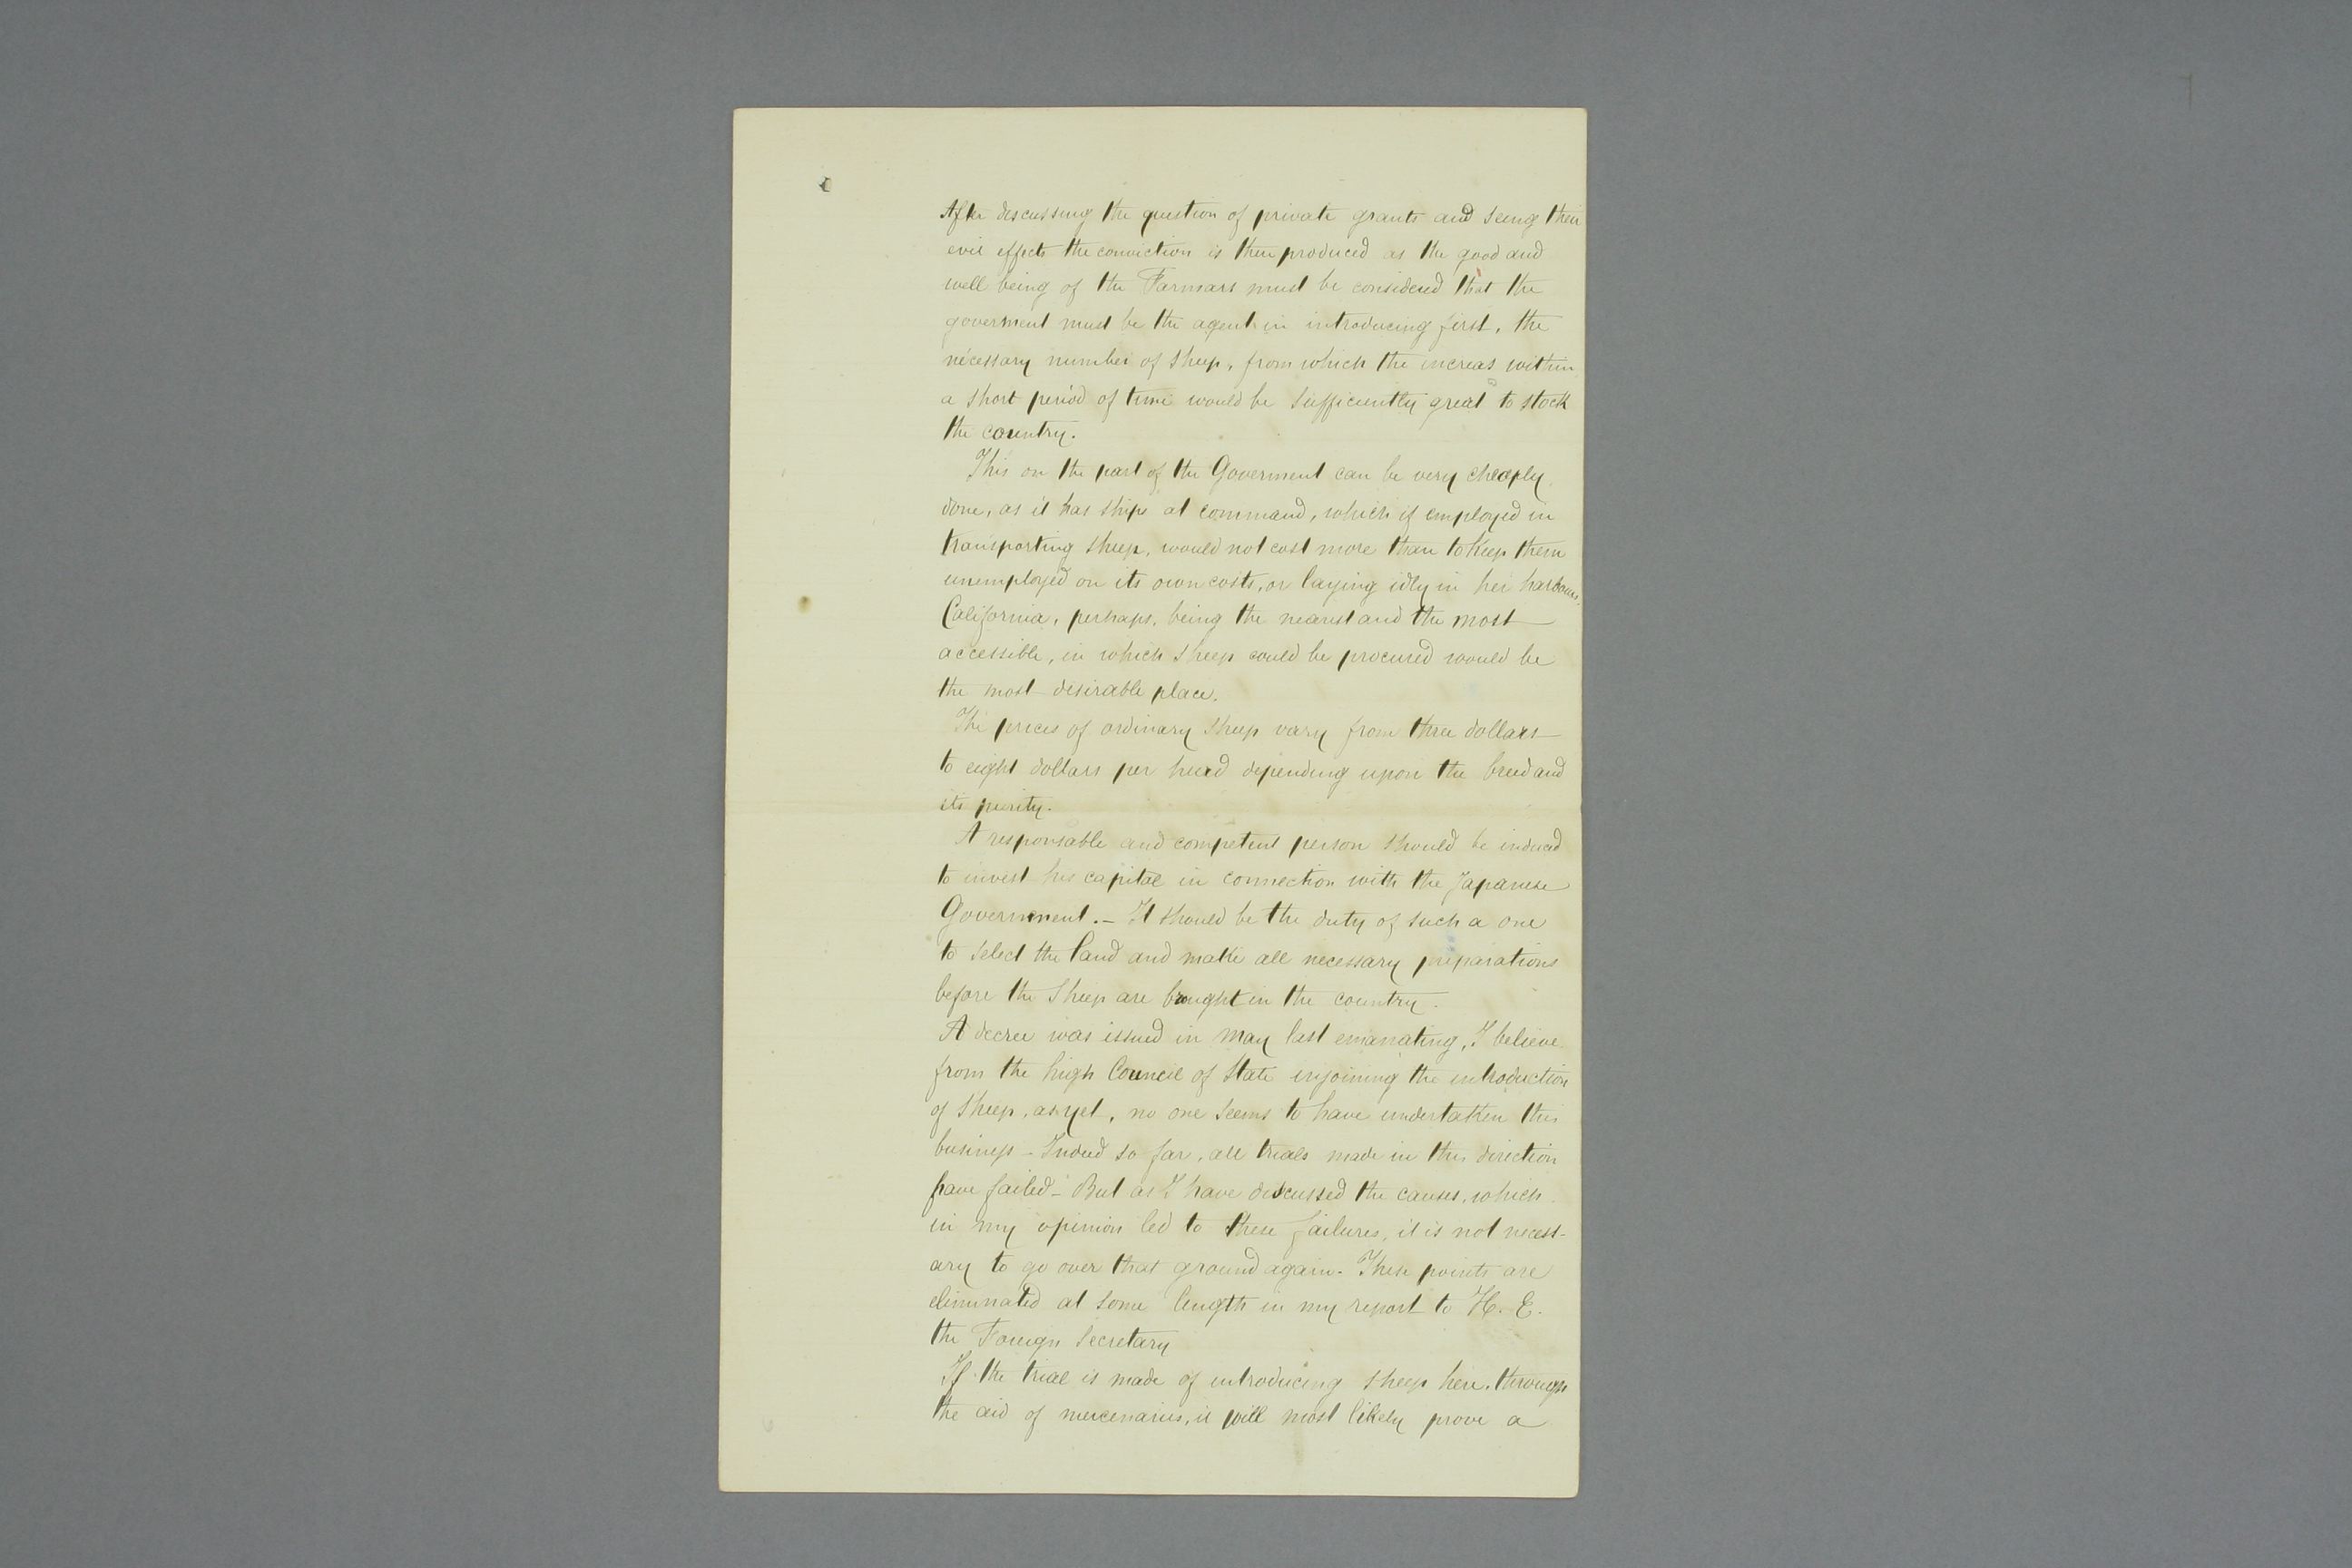 After discussing the question of private grants and seing their
evil effects the conviction is then produced as the good and
well being of the Farmars must be considered that the
goverment must be the agent in introducing first, the
necessary number of sheep, from which the increas within
a short period of time would be sufficiently great to stock
the country.
This on the part of the Goverment can be very cheaply
done, as it has ships at command, which if employed in
transporting sheep, would not cost more than to keep them
unemployed on its own costs, or laying idly in her harbours.
California, perhaps, being the nearest and the most
accessible, in which sheep could be procured would be
the most desirable place.
The prices of ordinary sheep vary from three dollars
to eight dollars per head depending upon the breed and
its purity.
A responsable and competent person should be induced
to invest his capital in connection with the Japanese
Government. – It should be the duty of such a one
to select the land and make all necessary preparations
before the sheep are brought in the country.
A decree was issued in May last emanating, I believe
from the high Council of State enjoining the introduction
of sheep, as yet, no one seems to have undertaken this
business – Indeed so far, all trials made in this direction
have failed – But as I have discussed the causes, which
in my opinion led to these failures, it is not necess-
ary to go over that ground again. These points are
eliminated at some length in my report to H. E.
the Foreign Secretary
If the trial is made of introducing sheep here, through
the aid of mercenaries, it will most likely prove a